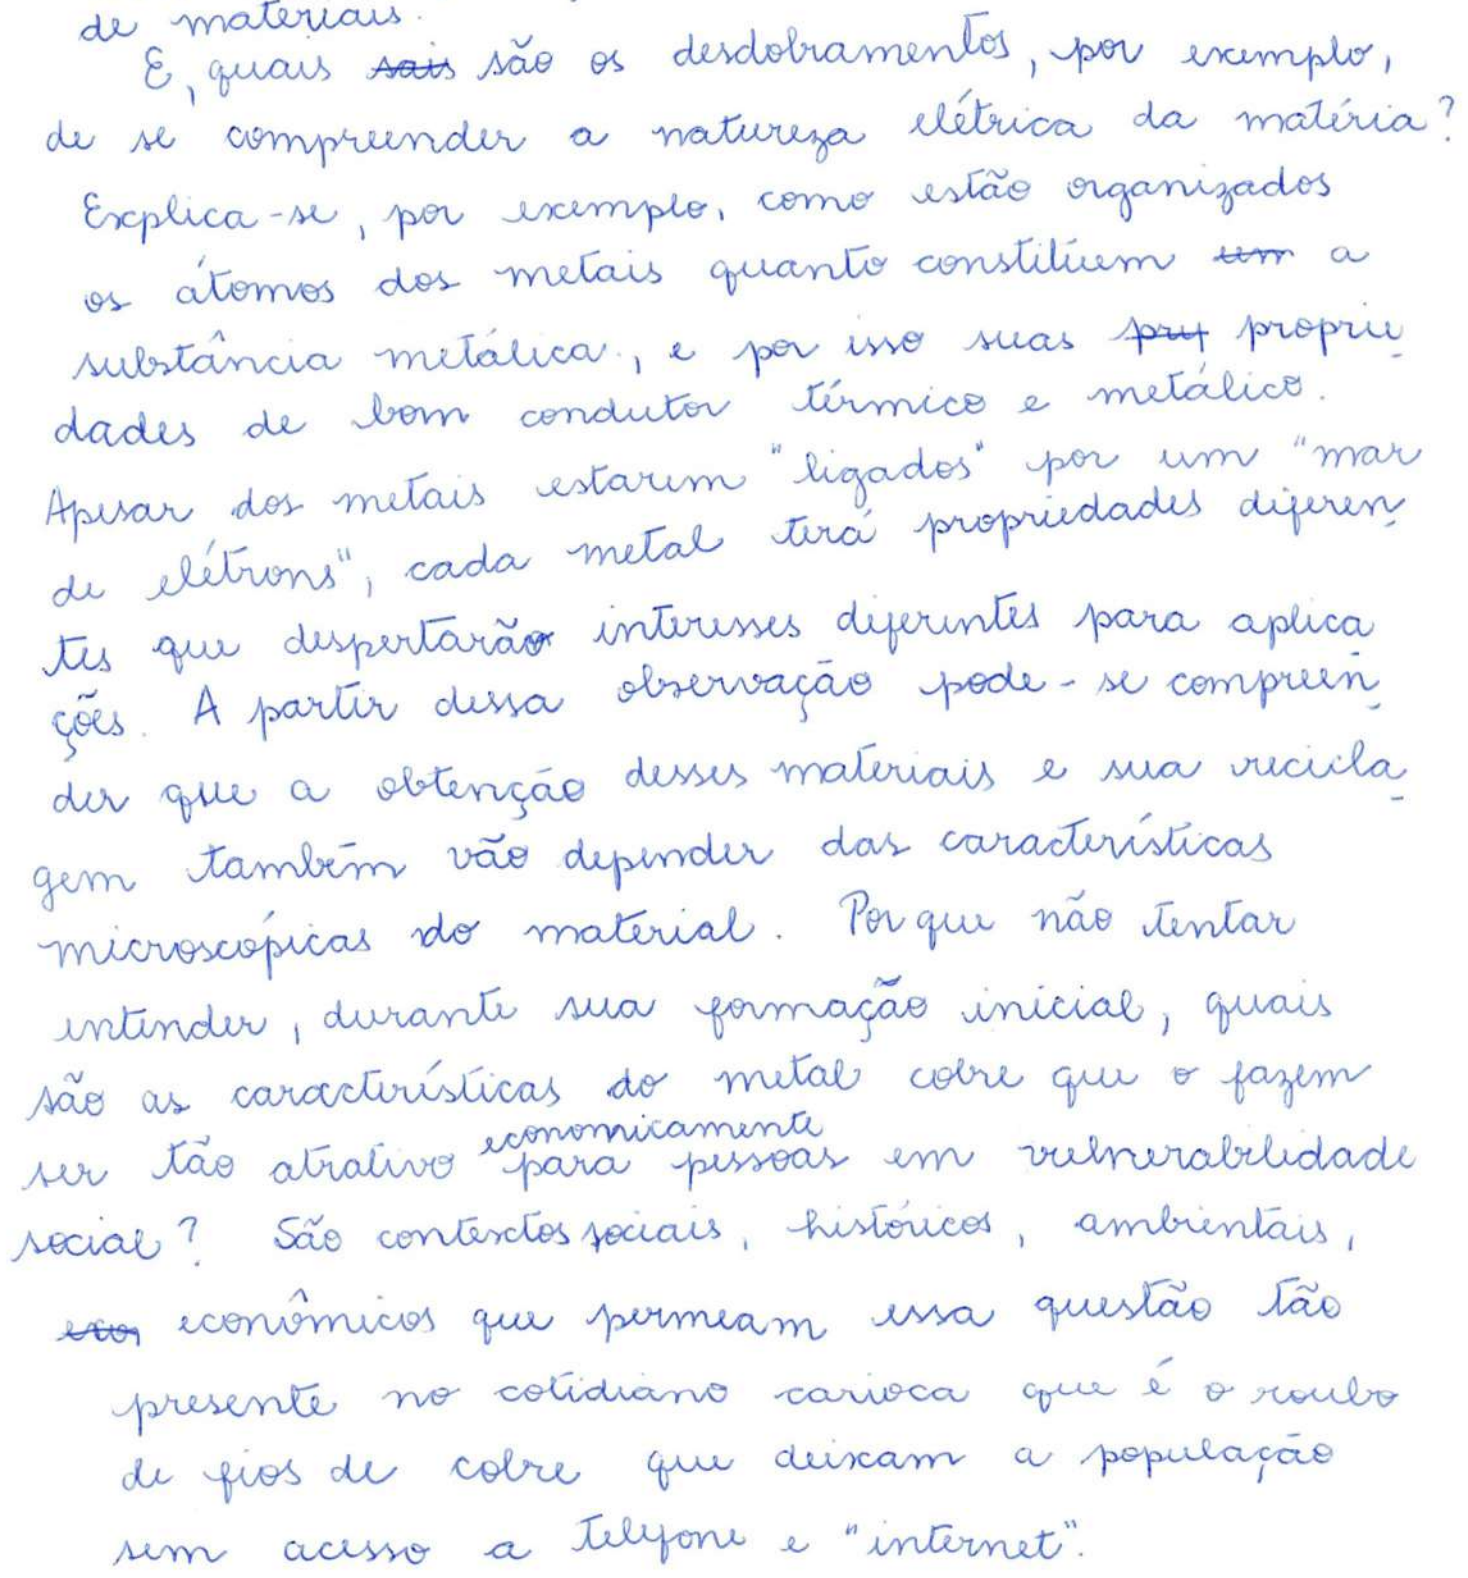 de materiais.
E, quais sais são os desdobramentos, por exemplo,
de se compreender a natureza elétrica da matéria?
Explica-se, por exemplo, como estão organizados
os átomos dos metais quanto constituem um a
substância metálica, e por isso suas prop proprie
dades de bom condutor térmico e metálico.
Apesar dos metais estarem "ligados" por um "mar
de elétrons", cada metal terá propriedades diferen
tes que despertarão interesses diferentes para aplica
ções. A partir dessa observação pode-se compreen
der que a obtenção desses materiais e sua recicla
gem também vão depender das características
microscópicas do material. Por que não tentar
entender, durante sua formação inicial, quais
são as características do metal cobre que o fazem
ser tão atrativo economicamente para pessoas em vulnerabilidade
social? São contextos sociais, históricos, ambientais,
econômicos que permeam essa questão tão
presente no cotidiano carioca que é o roubo
de fios de cobre que deixam a população
sem acesso a telefone e "internet".